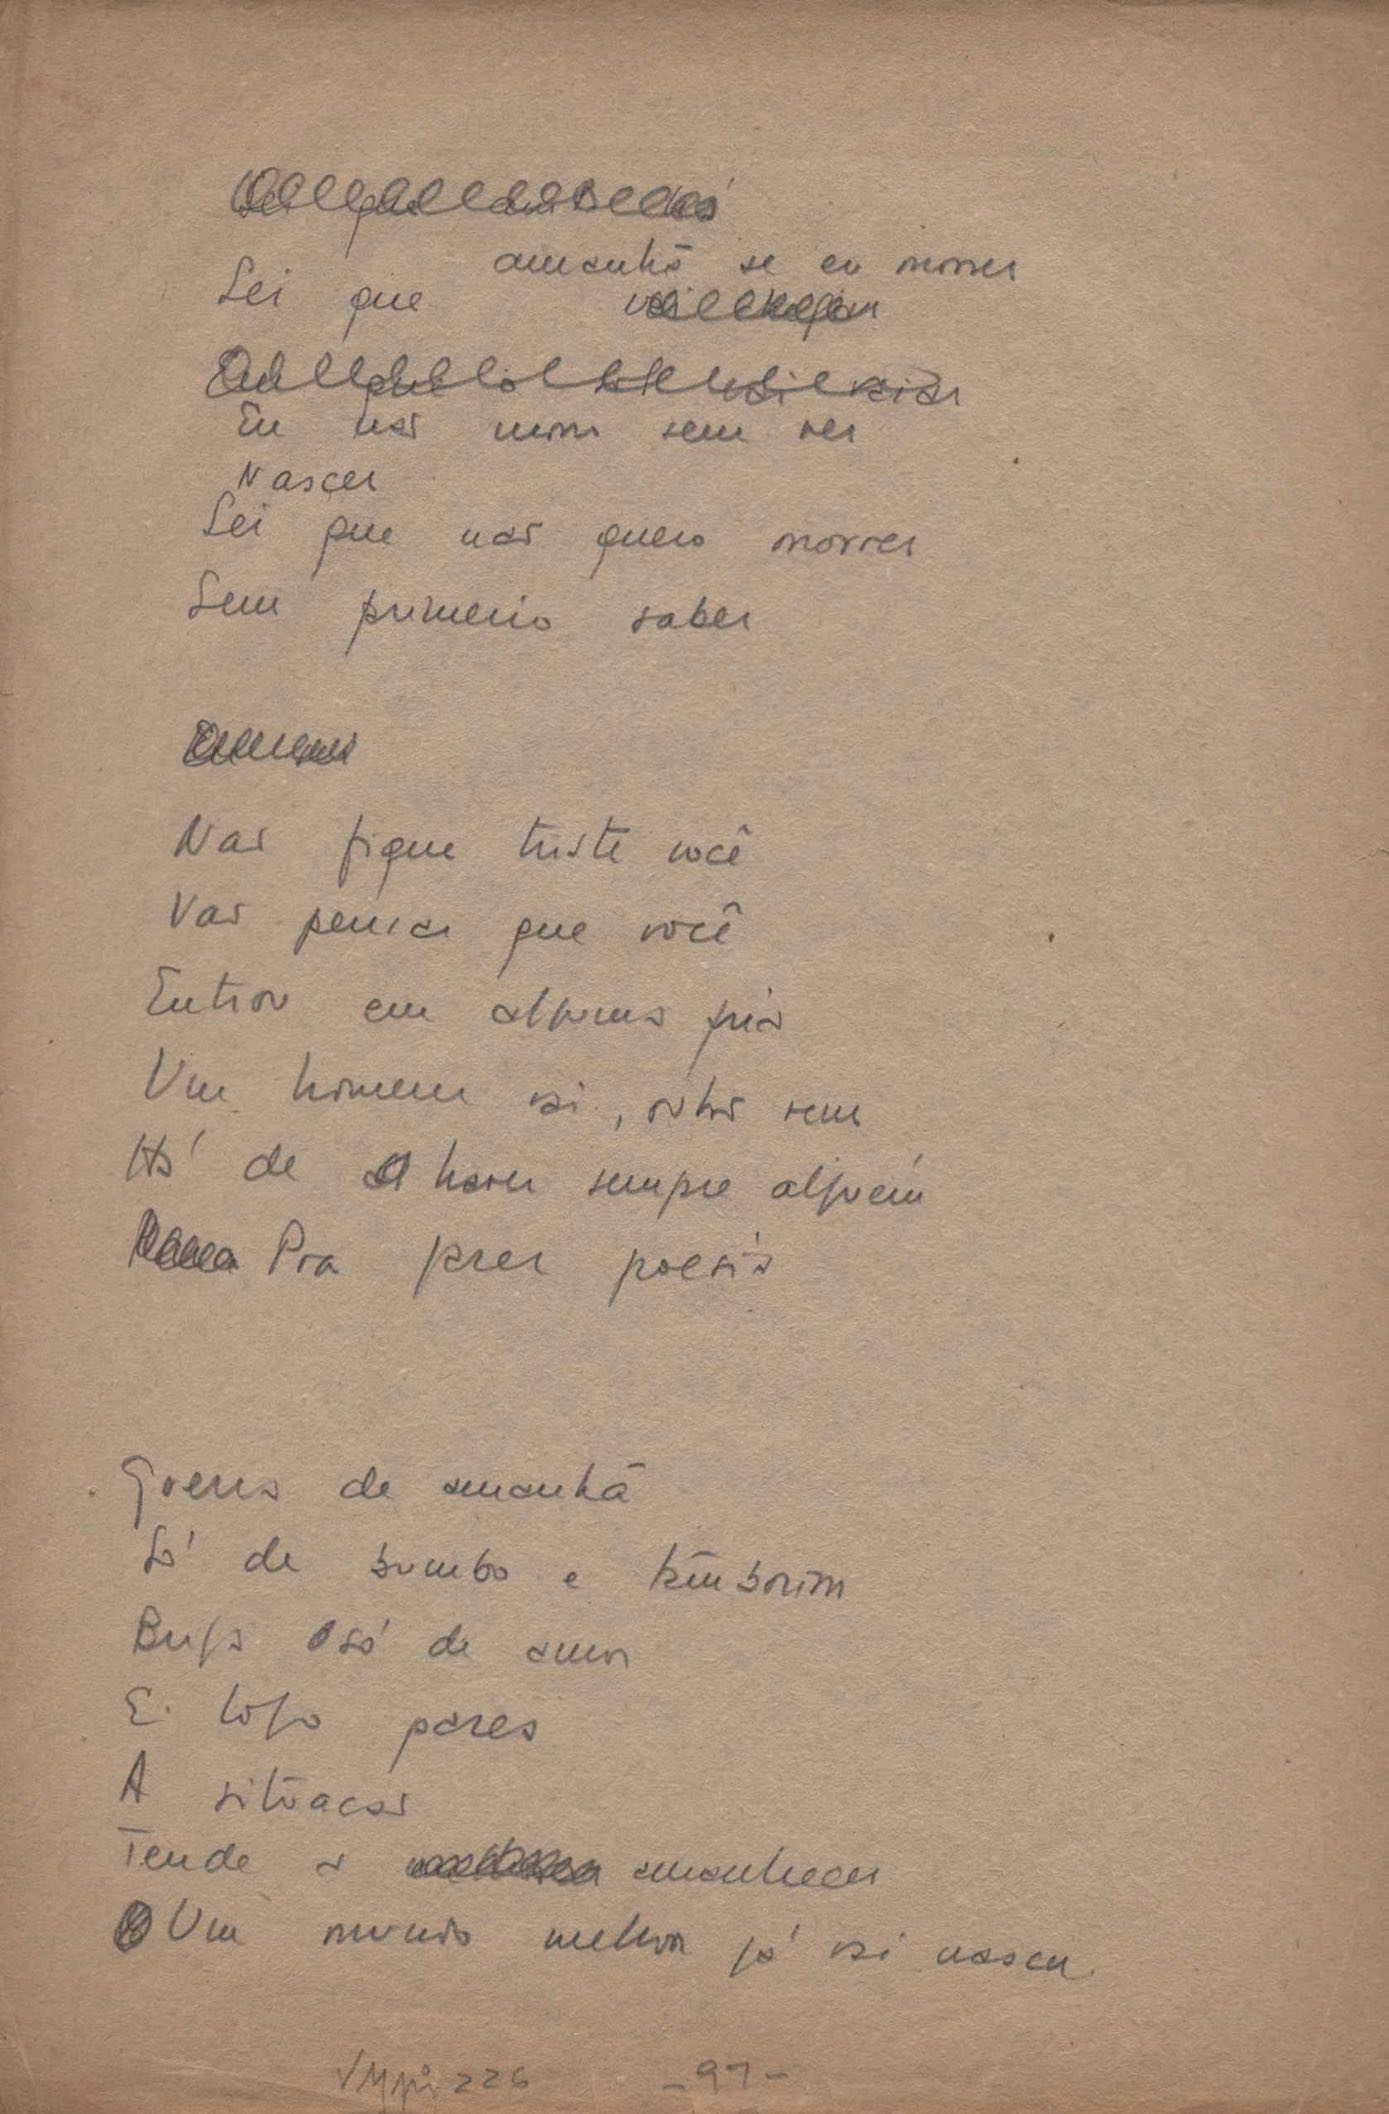 amanhã se eu morrer
Sei que
Eu não morro sem ver
Nascer
Sei que não quero morrer
Sem primeiro saber
Não fique triste você
Vão pensar que você
Entrou em alguma fria
Um homem vai, outro vem
Há de haver sempre alguém
Pra fazer poesia
Guerra de amanhã
Só de bumbo e tamborim
Briga só de amor
E logo
A situação
Tende a amanhecer
Um mundo melhor já vai nascer.
226 -97-